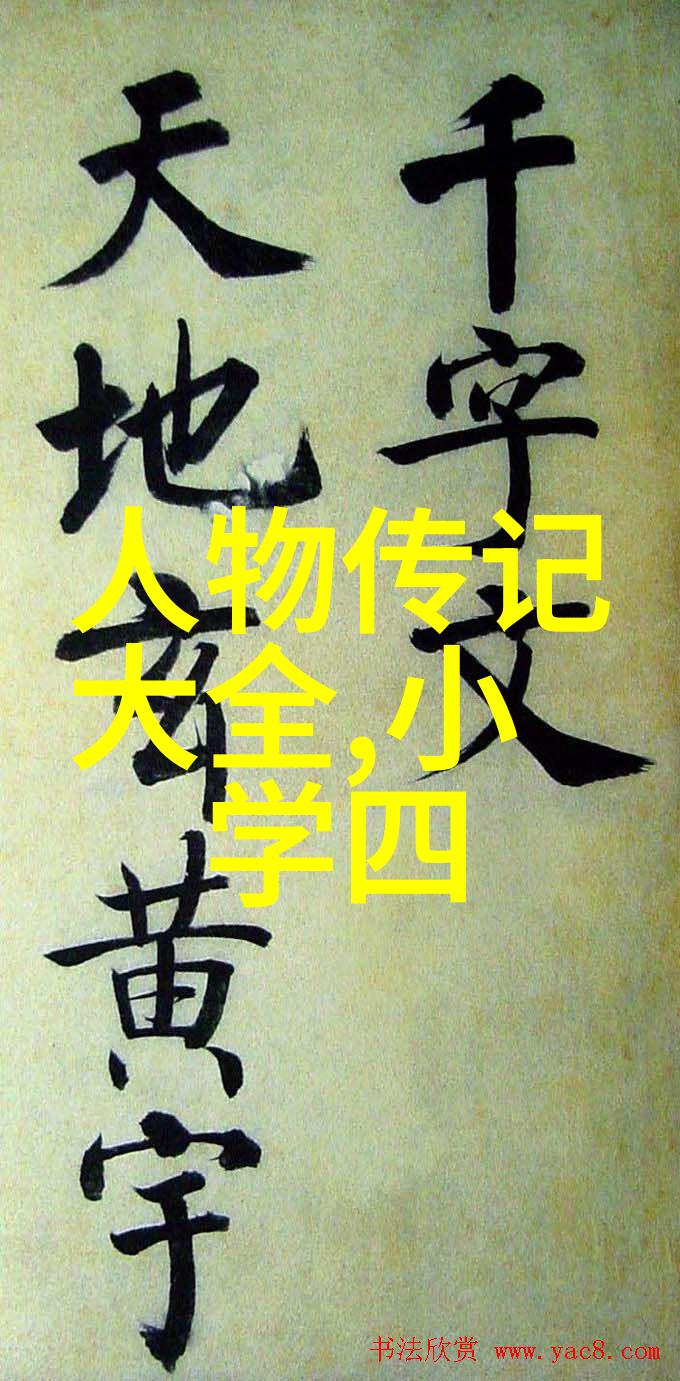 千字文
天地玄黄宇
人物传记
大全,小
学四
书法欣赏 www.yac8.com